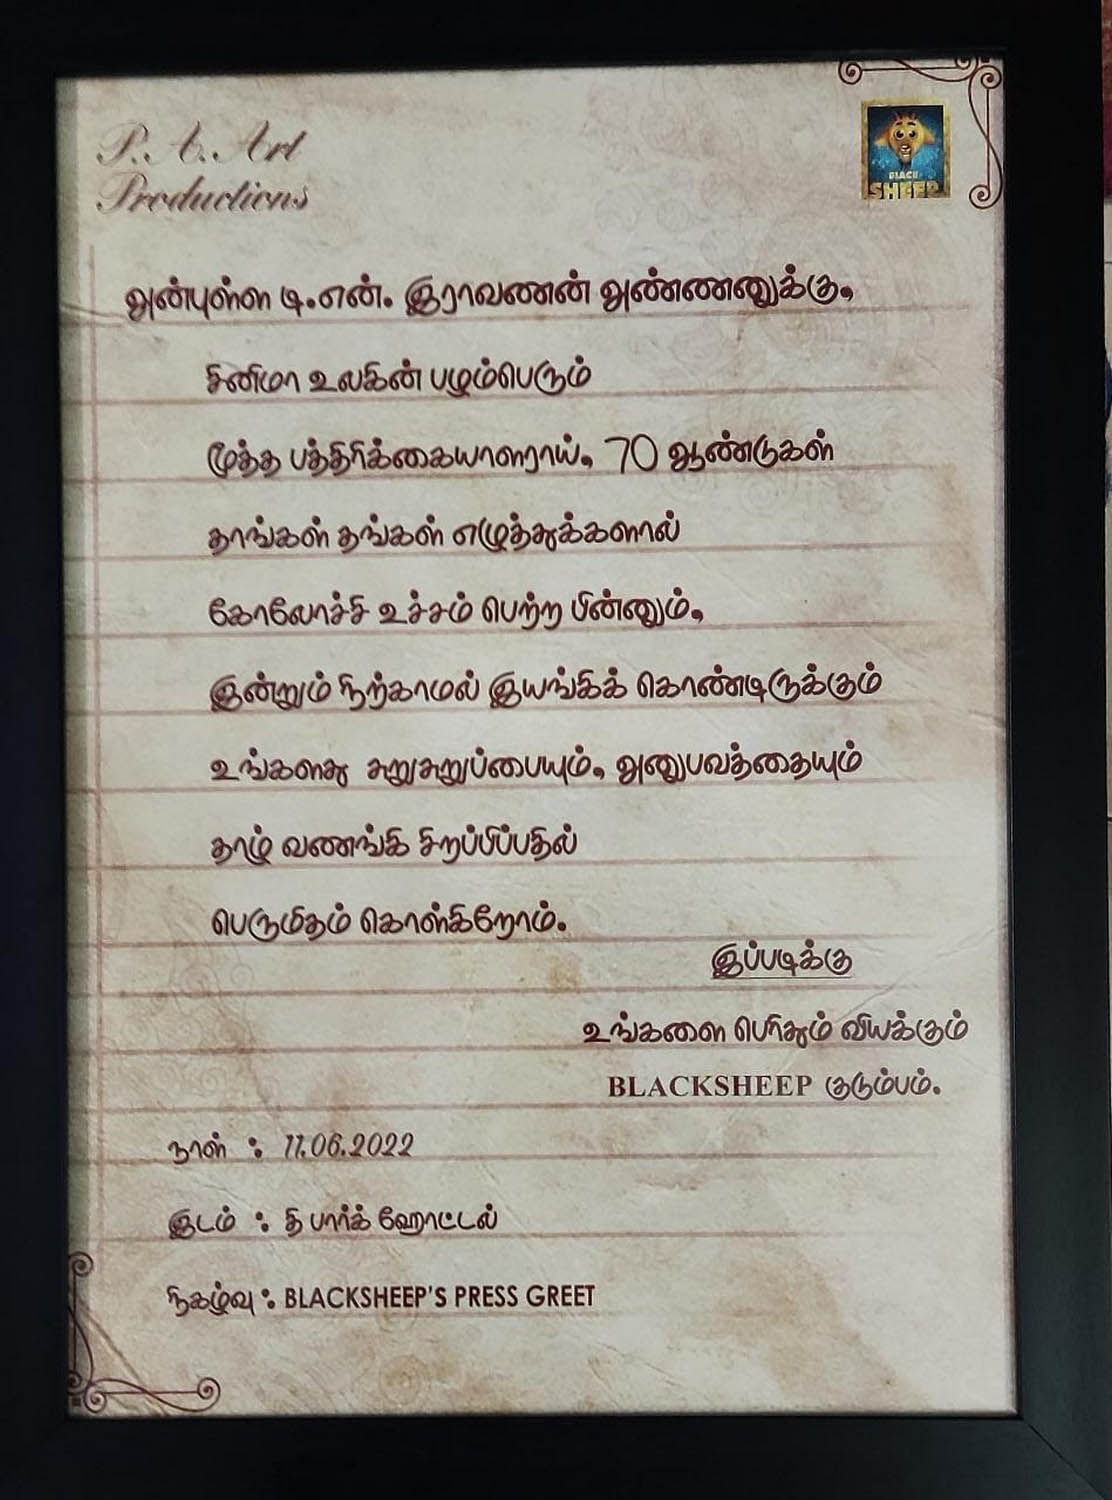 P. A. Art
Productions
BLACK
SHEEP
அன்புள்ள டி.என். இராவணன் அண்ணனுக்கு,
சினிமா உலகின் பழம்பெரும்
மூத்த பத்திரிக்கையாளராய், 70 ஆண்டுகள்
தாங்கள் தங்கள் எழுத்துக்களால்
கோலோச்சி உச்சம் பெற்ற பின்னும்,
இன்றும் நிற்காமல் இயங்கிக் கொண்டிருக்கும்
உங்களது சுறுசுறுப்பையும், அனுபவத்தையும்
தாழ் வணங்கி சிறப்பிப்பதில்
பெருமிதம் கொள்கிறோம்.
இப்படிக்கு
உங்களை பெரிதும் வியக்கும்
BLACKSHEEP குடும்பம்.
நாள் : 11.06.2022
இடம் : தி பார்க் ஹோட்டல்
நிகழ்வு : BLACKSHEEP'S PRESS GREET